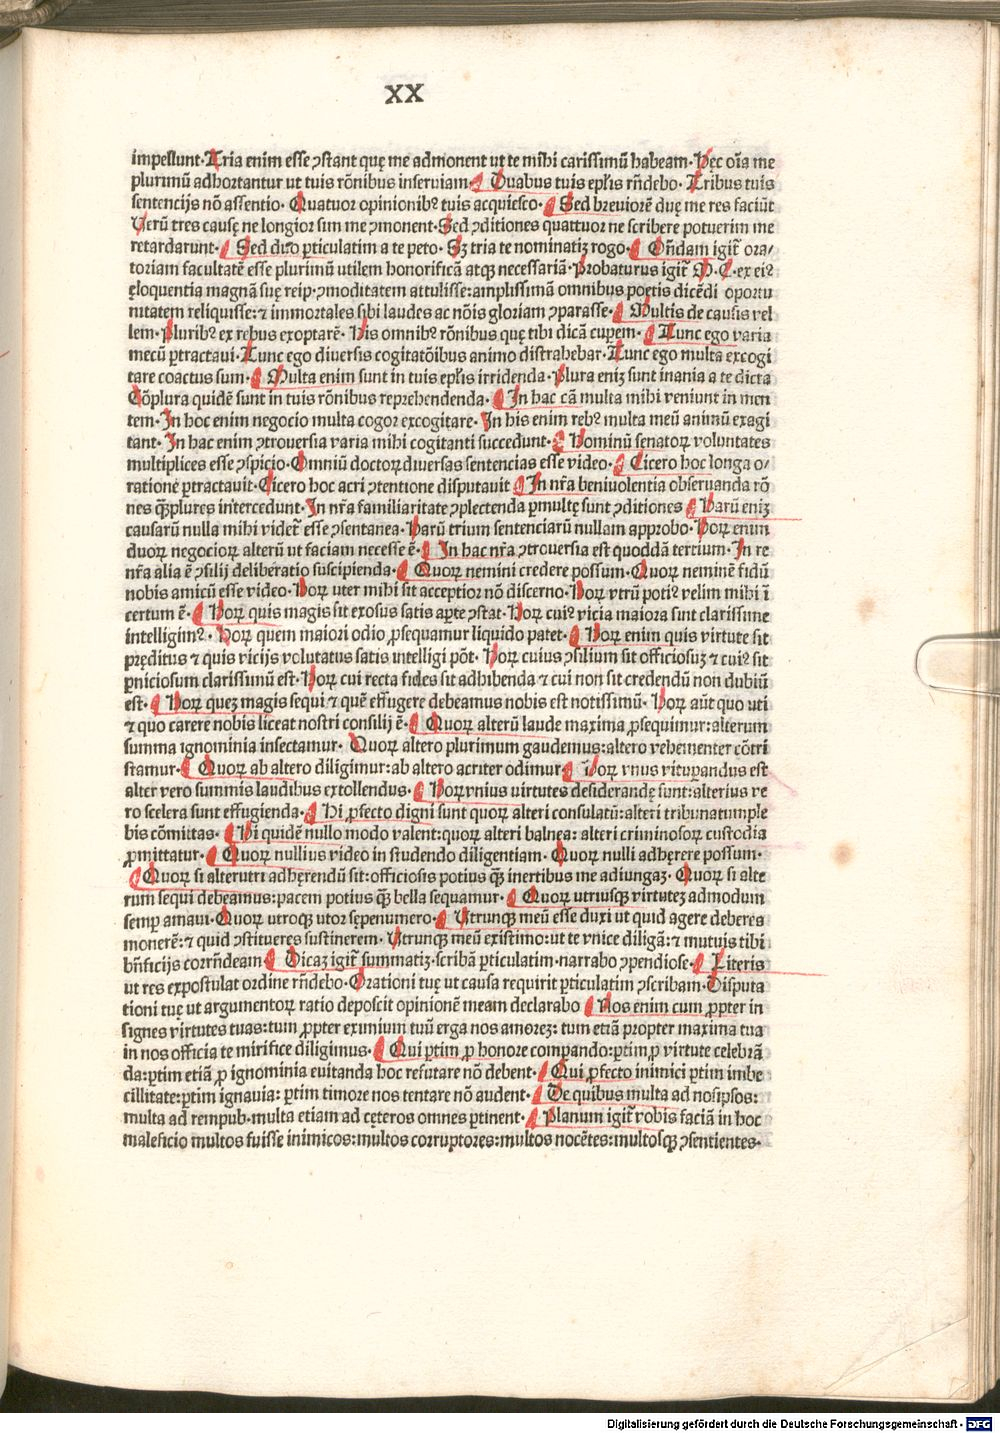 XX
impellunt·Tria enim esse ↄstant quę me admonent ut te mihi carissimũ habeam·Hęc oĩa me
plurimũ adhortantur ut tuis rõnibus inseruiam·¶ Duabus tuis eplis rñdebo· Tribus tuis
sentencijs nõ assentio· Quatuor opinionibꝰ tuis acquiesco·¶ Sed breuiorẽ duę me res faciũt
Verũ tres causę ne longior sim me ↄmonent·Sed ↄditiones quattuor ne scribere potuerim me
retardarunt·¶ Sed duo ꝑticulatim a te peto· Sꝫ tria te nominatiꝫ rogo·¶ Oñdam igit᷑ ora/
toriam facultatẽ esse plurimũ utilem honorificã atqꝫ necessariã·Probaturus igit᷑ M·C·ex eiꝰ
ęloquentia magnã suę reip·ↄmoditatem attulisse:amplissimã omnibus poetis dicẽdi oportu
nitatem reliquisse:⁊ immortales sibi laudes ac nõis gloriam ↄparasse·¶ Multis de causis vel
lem·Pluribꝰ ex rebus exoptarẽ· His omnibꝰ rõnibus quę tibi dicã cupem·¶ Tunc ego varia
mecũ ꝑtractaui·Tunc ego diuersis cogitatõibus animo distrahebar·Tunc ego multa excogi
tare coactus sum·¶ Multa enim sunt in tuis eplis irridenda·Plura eniꝫ sunt inania a te dicta
Cõplura quidẽ sunt in tuis rõnibus reprehendenda·¶ In hac cã multa mihi veniunt in men
tem·In hoc enim negocio multa cogoꝛ excogitare·In his enim rebꝰ multa meũ animũ exagi
tant· In hac enim ↄtrouersia varia mihi cogitanti succedunt·¶ Hominũ senatoꝝ voluntates
multiplices esse ↄspicio·Omniũ doctoꝝ diuersas sentencias esse video·¶ Cicero hoc longa o/
ratione ꝑtractauit·Cicero hoc acri ↄtentione disputauit ¶ In nr̃a beniuolentia obseruanda rõ
nes q̃ꝫplures intercedunt·In nr̃a familiaritate ↄplectenda ꝑmultę sunt ↄditiones·¶ Harũ eniꝫ
causarũ nulla mihi videt᷑ esse ↄsentanea·Harũ trium sentenciarũ nullam approbo·Hoꝝ enim
duoꝝ negocioꝝ alterũ ut faciam necesse ẽ·¶ In hac nr̃a ↄtrouersia est quoddã tertium·In re
nr̃a alia ẽ ↄsilij deliberatio suscipienda·¶ Quoꝝ nemini credere possum·Quoꝝ neminẽ fidũ
nobis amicũ esse video·Hoꝝ uter mihi sit acceptior nõ discerno·Hoꝝ vtrũ potiꝰ velim mihi ĩ
certum ẽ·¶ Hoꝝ quis magis sit exosus satis aꝑte ↄstat·Hoꝝ cuiꝰ vicia maiora sunt clarissime
intelligimꝰ· Hoꝝ quem maiori odio ꝓsequamur liquido patet·¶ Hoꝝ enim quis virtute sit
pręditus ⁊ quis vicijs volutatus satis intelligi põt· Hoꝝ cuius ↄsilium sit officiosuꝫ ⁊ cuiꝰ sit
ꝑniciosum clarissimũ est·Hoꝝ cui recta fides sit adhibenda ⁊ cui non sit credendũ non dubiũ
est·¶ Hoꝝ queꝫ magis sequi ⁊ quẽ effugere debeamus nobis est notissimũ· Hoꝝ aũt quo uti
⁊ quo carere nobis liceat nostri consilij ẽ·¶ Quoꝝ alterũ laude maxima ꝓsequimur:alterum
summa ignominia insectamur· Quoꝝ altero plurimum gaudemus:altero vehementer cõtri
stamur·¶ Quoꝝ ab altero diligimur:ab altero acriter odimur·¶ Hoꝝ vnus vituꝑandus est
alter vero summis laudibus extollendus·¶ Hoꝝ vnius virtutes desiderandę sunt:alterius ve
ro scelera sunt effugienda·¶ Hi ꝓfecto digni sunt quoꝝ alteri consulatũ:alteri tribunatumple
bis cõmittas·¶ Hi quidẽ nullo modo valent:quoꝝ alteri balnea: alteri criminosoꝝ custodia
ꝓmittatur·¶ Quoꝝ nullius video in studendo diligentiam·Quoꝝ nulli adhęrere possum·
¶ Quoꝝ si alterutri adhęrendũ sit:officiosis potius q̃ꝫ inertibus me adiungaꝫ· Quoꝝ si alte
rum sequi debeamus:pacem potius q̃ꝫ bella sequamur·¶ Quoꝝ utriusqꝫ virtuteꝫ admodum
semꝑ amaui·Quoꝝ utroqꝫ utor sępenumero·¶ Vtrunqꝫ meũ esse duxi ut quid agere deberes
monerẽ:⁊ quid ↄstitueres sustinerem·Vtrunqꝫ meũ existimo:ut te vnice diligã:⁊ mutuis tibi
bñficijs corrñdeam·¶ Dicaꝫ igit᷑ summatiꝫ·scribã ꝑticulatim·narrabo ↄpendiose·¶ Literis
ut res expostulat ordine rñdebo·Orationi tuę ut causa requirit ꝑticulatim ↄscribam·Disputa
tioni tuę ut argumentoꝝ ratio deposcit opinionẽ meam declarabo ¶ Nos enim cum ꝓpter in
signes virtutes tuas:tum ꝓpter eximium tuũ erga nos amoreꝫ: tum etiã propter maxima tua
in nos officia te mirifice diligimus·¶ Qui ꝑtim ꝓ honore compando:ꝑtim ꝓ virtute celebrã
da:ꝑtim etiã ꝓ ignominia euitanda hoc refutare nõ debent·¶ Qui ꝓfecto inimici ꝑtim imbe
cillitate:ꝑtim ignauia: ꝑtim timore nos tentare nõ audent·¶ De quibus multa ad nosipsos:
multa ad rempub·multa etiam ad cęteros omnes ꝑtinent·¶ Planum igit᷑ vobis faciã in hoc
maleficio multos fuisse inimicos:multos corruptores:multos nocẽtes:multosqꝫ ↄsentientes·
Digitalisierung gefördert durch die Deutsche Forschungsgemeinschaft - DFG